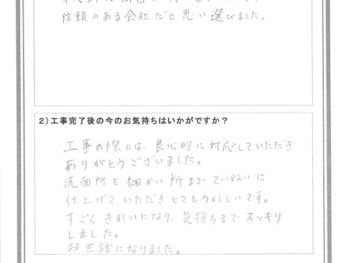 信頼のある会社だと思い選びました。
2)工事完了後の今のお気持ちはいかがですか？
工事の際には、良心的に対応していただき
ありがとうございました。
洗面所も細かい所までていねいに
仕上げていただきとてもうれしいです。
すごくきれいになり、気持ちまでスッキリ
しました。
お世話になりました。